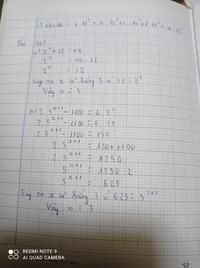 Bài 461
a) 2ˣ + 12 = 44
2ˣ = 44 - 12
2ˣ = 32
Suy ra x sẽ bằng 5 vì 32 = 2⁵
Vậy x = 5
2.5ˣ⁺¹ - 1100 = 6.5²
2.5ˣ⁺¹ - 1100 = 6.25
2.5ˣ⁺¹ - 1100 = 150
2.5ˣ⁺¹ = 150 + 1100
2.5ˣ⁺¹ = 1250
5ˣ⁺¹ = 1250 : 2
5ˣ⁺¹ = 625
Suy ra x sẽ bằng 3 vì 625 = 5³⁺¹
Vậy x = 3
REDMI NOTE 9
AI QUAD CAMERA